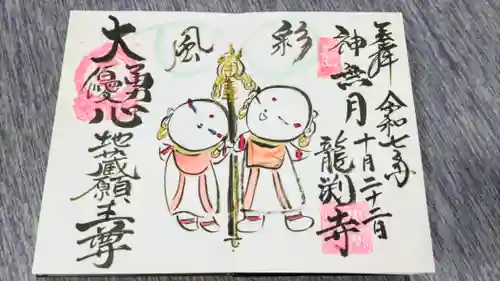 奉拝 令和七年
神無月 十月二十二日
龍渕寺
彩
風
大勇心
優
地蔵願王尊